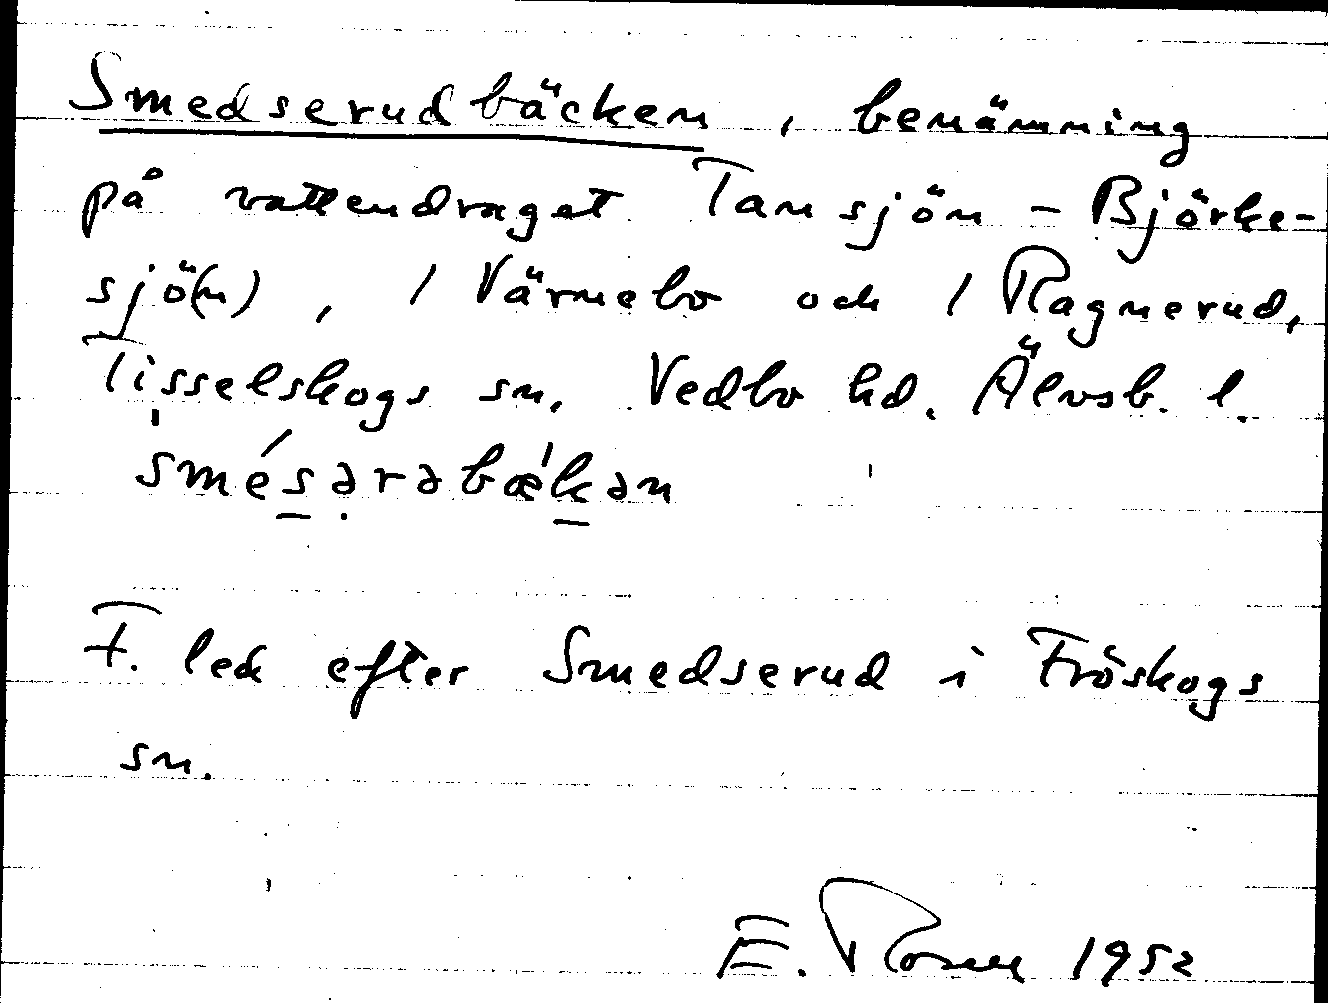 Smedserudbäcken, benämning
på vattendraget Tansjön - Björke-
sjö(n), 1 Värnebo och 1 Ragnerud,
Tisselskogs sn. Vedbo hd. Älvsb. l.
smésərəbǽkən
F. led efter Smedserud i Fröskogs
sn.
E. 1952